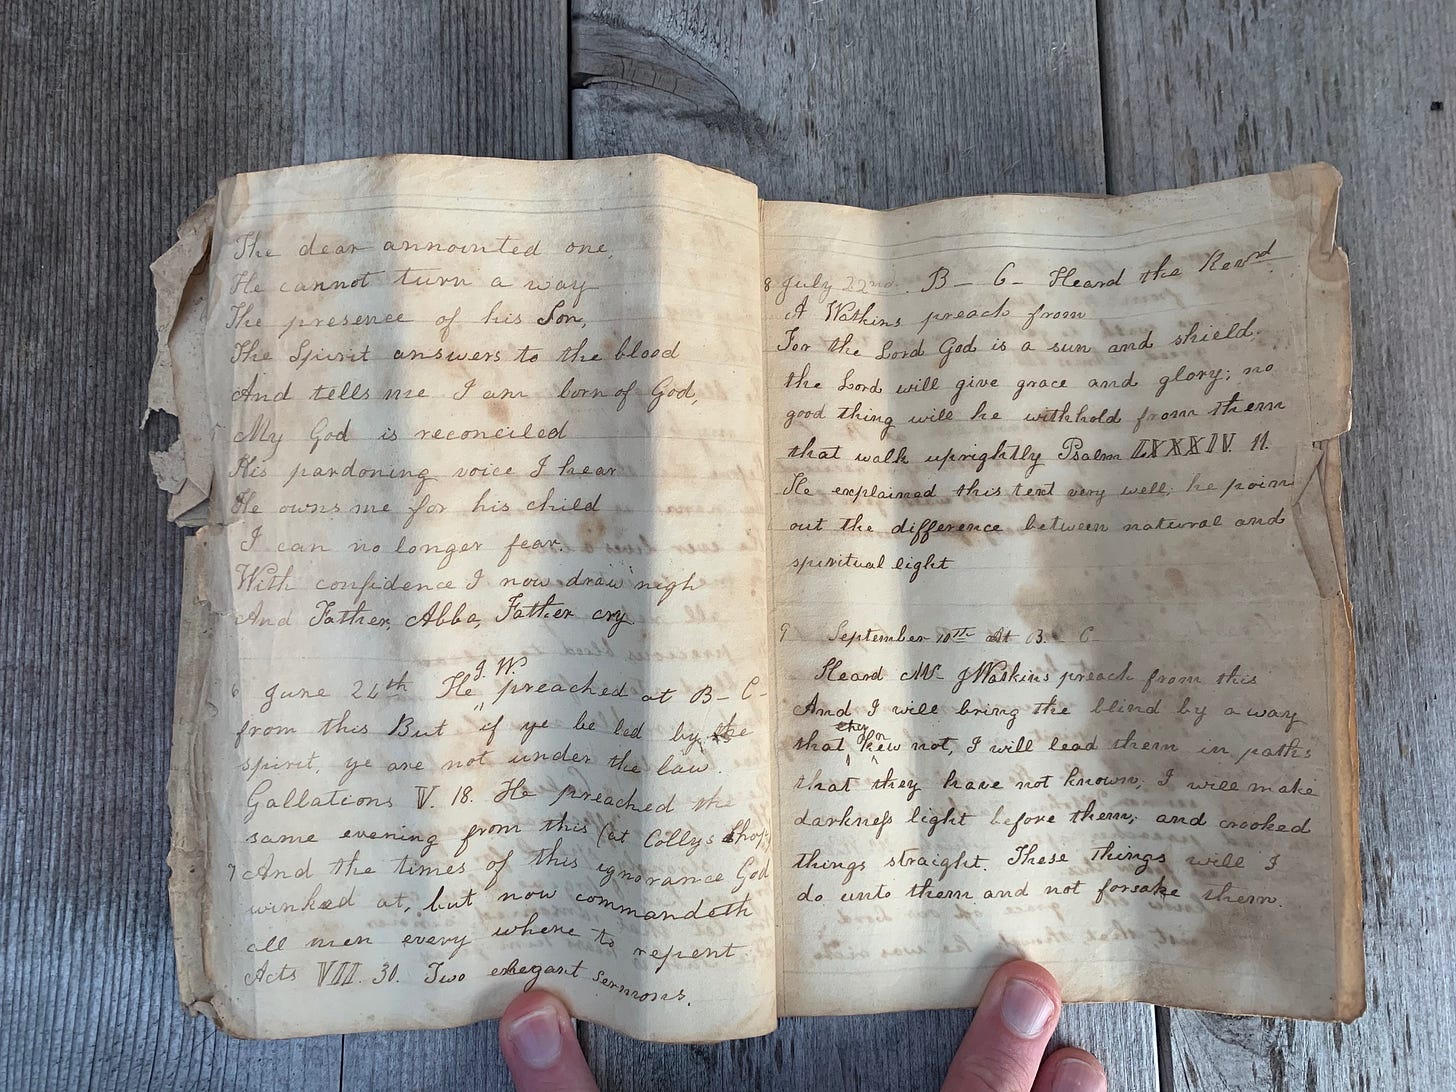 The dear annointed one,
He cannot turn a way
The presence of his Son,
The Spirit answers to the blood
And tells me I am born of God,
My God is reconciled
His pardoning voice I hear
He owns me for his child
I can no longer fear.
With confidence I now draw nigh
And Father, Abba, Father cry
J. W.
6 June 24th He preached at B- C-
from this But if ye be led by the
spirit, ye are not under the law.
Gallations V. 18. He preached the
same evening from this (at Collys Shop)
7 And the times of this ignorance God
winked at, but now commandeth
all men every where to repent.
Acts VII. 30. Two sermons.
8 July 22nd. B- C- Heard the Revrd
A Watkins preach from
For the Lord God is a sun and shield.
the Lord will give grace and glory; no
good thing will he withhold from them
that walk uprightly Psalm LXXXIV. 11.
He explained this text very well; he poin
out the difference between natural and
spiritual light
9 September 10th At B. C-
Heard Mr J Watkins preach from this
And I will bring the blind by a way
they n
that kew not, I will lead them in paths
that they have not known; I will make
darkness light before them, and crooked
things straight. These things will I
do unto them and not forsake them.